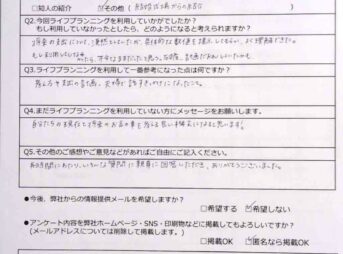 □知人の紹介 ☑その他(結婚式場からの紹介)
Q2.今回ライフプランニングを利用していかがでしたか?
もし利用していなかったとしたら、どのようになると考えられますか?
将来の支出について、漠然としていたが、具体的な数値を提示してもらい、よく理解できた。
もし利用していなければ
Q3.ライフプランニングを利用して一番参考になった点は何ですか?
Q4.まだライフプランニングを利用していない方にメッセージをお願いします。
自分たちの現在と将来のお金の事を考える良い機会になると思います!
Q5.その他ご感想やご意見などがあればご自由にご記入ください。
長時間にわたり、いろいろな質問に親身に回答いただき、ありがとうございました。
●今後、弊社からの情報提供メールを希望しますか?
□希望する ☑希望しない
●アンケート内容を弊社ホームページ・SNS・印刷物などに掲載してもよろしいですか?
(メールアドレスについては削除して掲載します。)
□掲載OK ☑匿名なら掲載OK